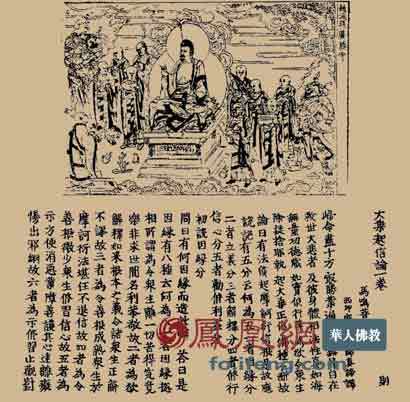 大乘起信論一卷
別
馬鳴菩
歸命盡十方 最勝業遍 自在
救世大悲者 及彼身體相 法性真如海
無量功德藏 如實修行等 為欲令眾生
除疑捨邪執 起大乘正信 佛種不斷故
論曰有法能起摩訶衍信根是故應
說說有五分云何為五一者因緣分
二者立義分三者解釋分四者修行
信心分五者勸修利益分
初說因緣分
問曰有何因緣而造此論答曰是
因緣有八種云何為八一者因緣總
相所謂為令眾生離一切苦得究竟
樂非求世間名利恭敬故二者為欲
解釋如來根本之義令諸眾生正解
不謬故三者為令善根成熟眾生於
摩訶衍法堪任不退信故四者為令
善根微少眾生修習信心故五者為
示方便消惡業障善護其心遠離癡
慢出邪網故六者為示修習止觀對
鳳凰網
華人佛教
fo.ifeng.com